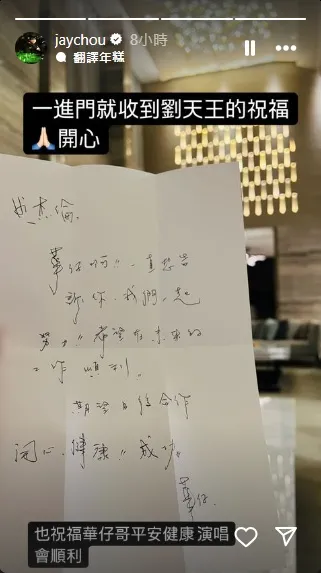 jaychou 8小時
翻譯年糕
一進門就收到劉天王的祝福
🙏🏻開心
杰倫
華仔
一直
我們一起
努力 希望在未來的
工作順利
期望日後合作
開心 健康 成功
華仔
也祝福華仔哥平安健康 演唱
會順利